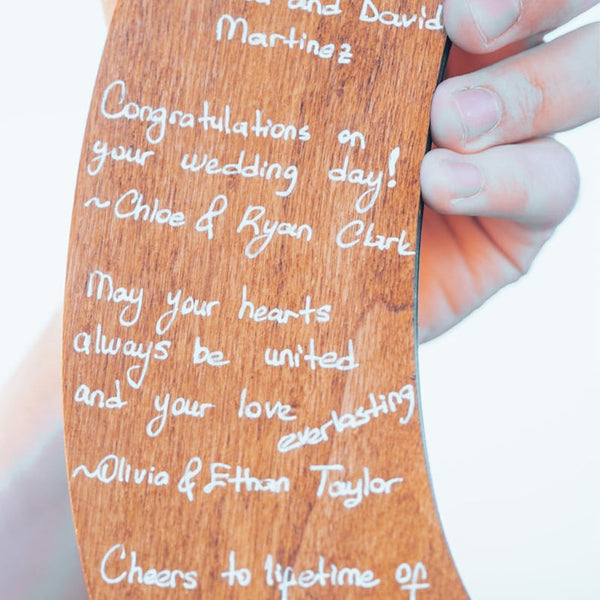 and David
Martinez
Congratulations on
your wedding day!
~Chloe & Ryan Clark
May your hearts
always be united
and your love everlasting
~Olivia & Ethan Taylor
Cheers to lifetime of